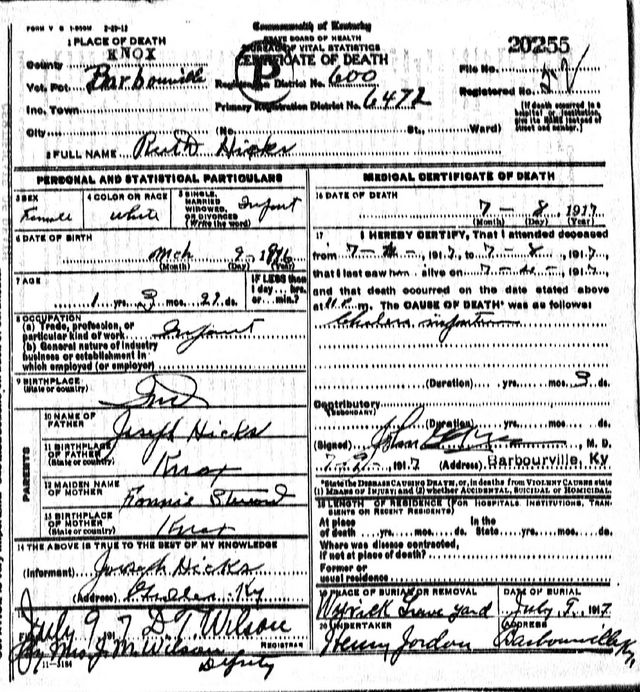 FORM V S 1-500M 2-19-13
Commonwealth of Kentucky
STATE BOARD OF HEALTH
BUREAU OF VITAL STATISTICS
CERTIFICATE OF DEATH
20255
1 PLACE OF DEATH
County KNOX
Vot. Pct. Barbourville
Inc. Town
City (No. St., Ward)
P
Registration District No. 600
Primary Registration District No. 6472
File No.
Registered No.
(If death occurred in a hospital or institution, give its NAME instead of street and number.)
2 FULL NAME Ruth Hicks
PERSONAL AND STATISTICAL PARTICULARS
3 SEX Female
4 COLOR OR RACE White
5 SINGLE, MARRIED WIDOWED, OR DIVORCED (Write the word) Infant
6 DATE OF BIRTH Mch 9 - 1916
(Month) (Day) (Year)
7 AGE 1 yrs. 3 mos. 29 ds.
IF LESS than 1 day... hrs. or... min.?
8 OCCUPATION
(a) Trade, profession, or particular kind of work Infant
(b) General nature of industry business or establishment in which employed (or employer)
9 BIRTHPLACE
(State or country)
PARENTS
10 NAME OF FATHER Joseph Hicks
11 BIRTHPLACE OF FATHER (State or country) Knox
12 MAIDEN NAME OF MOTHER
13 BIRTHPLACE OF MOTHER (State or country) Knox
14 THE ABOVE IS TRUE TO THE BEST OF MY KNOWLEDGE
(Informant) Joseph Hicks
(Address) Ky
July 9 1917 D T Wilson
REGISTRAR
By Mrs J. M. Wilson
Deputy
11-3184
MEDICAL CERTIFICATE OF DEATH
16 DATE OF DEATH
7 - 8, 1917
(Month) (Day) (Year)
17 I HEREBY CERTIFY, That I attended deceased
from 7 - , 1917, to 7 - 8, 1917
that I last saw h alive on 7 - , 1917,
and that death occurred on the date stated above
at m. The CAUSE OF DEATH* was as follows:
Cholera infantum
(Duration) yrs. mos. 3 ds.
Contributory
(SECONDARY)
(Duration) yrs. mos. ds.
(Signed) , M. D.
7-9-, 1917 (Address) Barbourville, Ky
*State the DISEASE CAUSING DEATH, or, in deaths from VIOLENT CAUSES state (1) MEANS OF INJURY; and (2) whether ACCIDENTAL, SUICIDAL or HOMICIDAL.
18 LENGTH OF RESIDENCE (FOR HOSPITALS, INSTITUTIONS, TRANSIENTS OR RECENT RESIDENTS)
At place of death yrs. mos. ds. In the State yrs. mos. ds.
Where was disease contracted, if not at place of death?
Former or usual residence
19 PLACE OF BURIAL OR REMOVAL Grave yard
DATE OF BURIAL July 9, 1917
20 UNDERTAKER Henry Jordon
ADDRESS Barbourville Ky